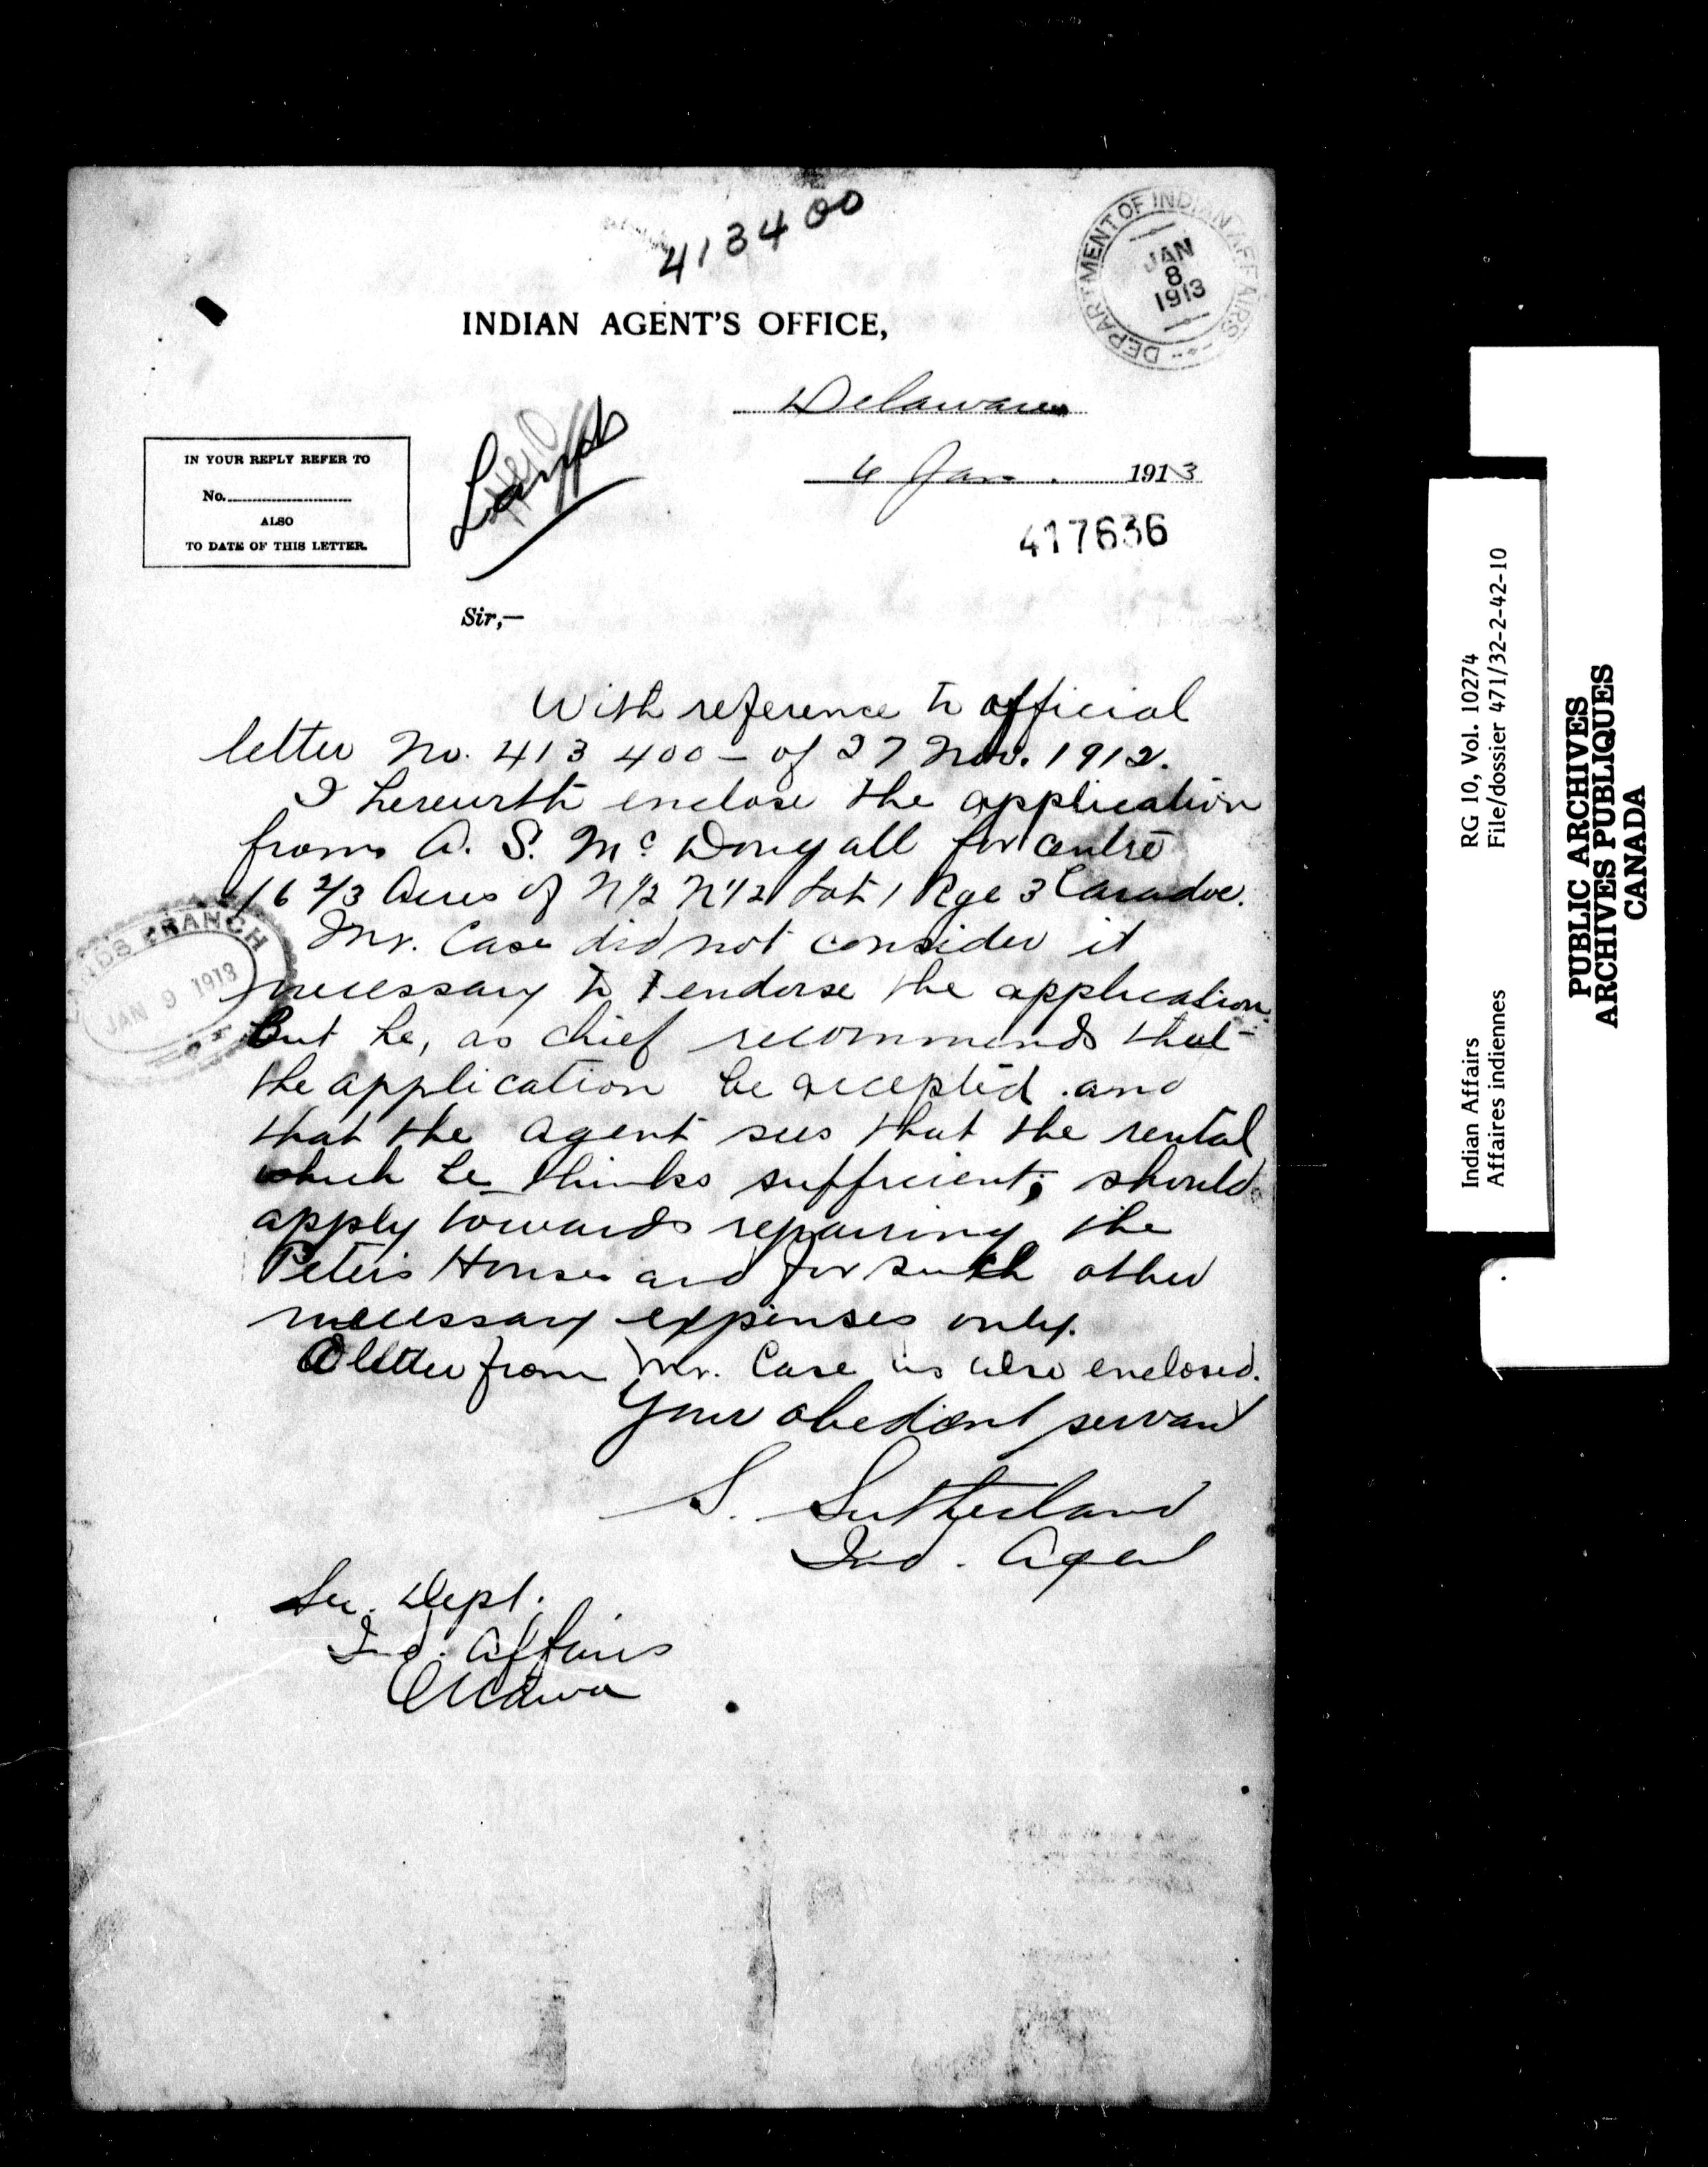 413400
DEPARTMENT OF INDIAN AFFAIRS
JAN
8
1913
INDIAN AGENT'S OFFICE,
Delaware
6 Jan. 1913
IN YOUR REPLY REFER TO
No.
ALSO
TO DATE OF THIS LETTER.
417636
Sir,—
With reference to official
letter No. 413 400 - of 27 Nov. 1912.
I herewith enclose the application
from A. S. Mc Dougall for centre
16 2/3 Acres of N1/2 N1/2 Lot 1 Rge 3 Caradoc.
Mr. Case did not consider it
necessary to endorse the application.
But he, as chief recommends that
the application be accepted and
that the agent sees that the rental
which he thinks sufficient, should
apply towards repairing the
Peters House and for such other
necessary expenses only.
A letter from Mr. Case is also enclosed.
Your obedient servant
S. Sutherland
Ind. Agent
Sec. Dept.
Ind. Affairs
Ottawa
LANDS BRANCH
JAN 9 1913
RG 10, Vol. 10274
File/dossier 471/32-2-42-10
Indian Affairs
Affaires indiennes
PUBLIC ARCHIVES
ARCHIVES PUBLIQUES
CANADA